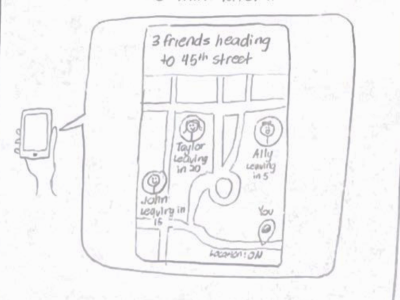 3 friends heading
to 45th street
Taylor
Leaving
in 20
Ally
Leaving
in 5
John
Leaving in
15
You
Location: ON